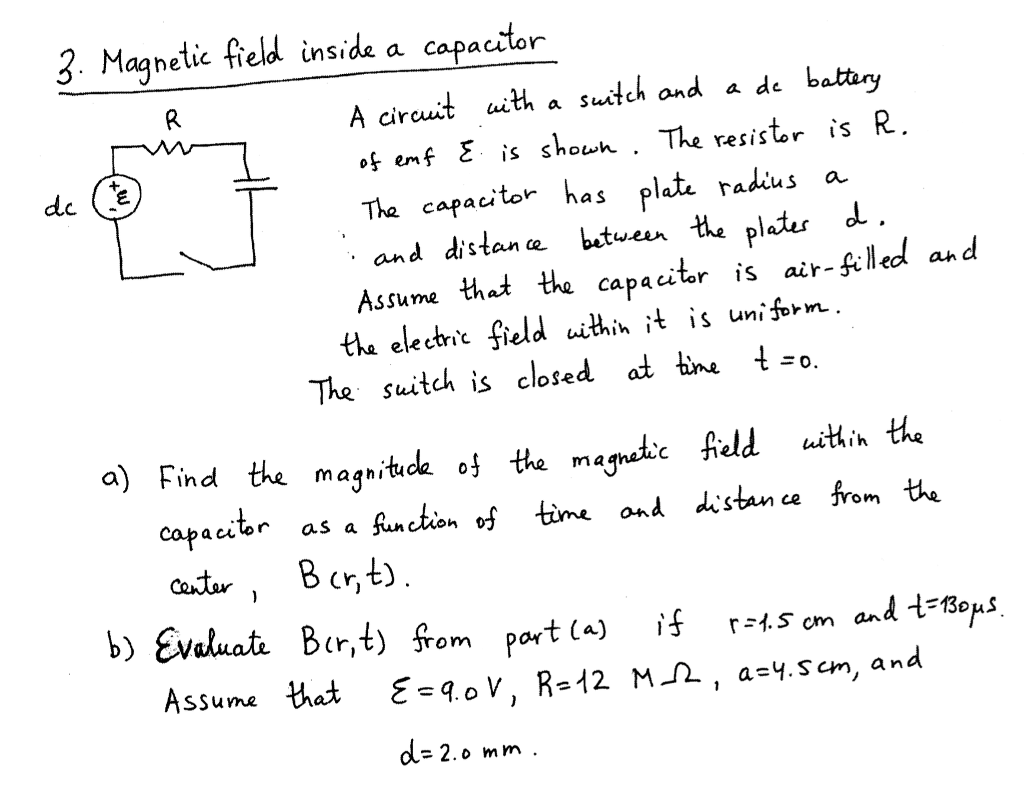 3. Magnetic field inside a capacitor
R
dc
+
ε
-
A circuit with a switch and a dc battery
of emf ε is shown. The resistor is R.
The capacitor has plate radius a
and distance between the plates d.
Assume that the capacitor is air-filled and
the electric field within it is uniform.
The switch is closed at time t=0.
a) Find the magnitude of the magnetic field within the
capacitor as a function of time and distance from the
center, B(r,t).
b) Evaluate B(r,t) from part (a) if r=1.5 cm and t=130μs.
Assume that ε=9.0V, R=12 MΩ, a=4.5cm, and
d=2.0 mm.